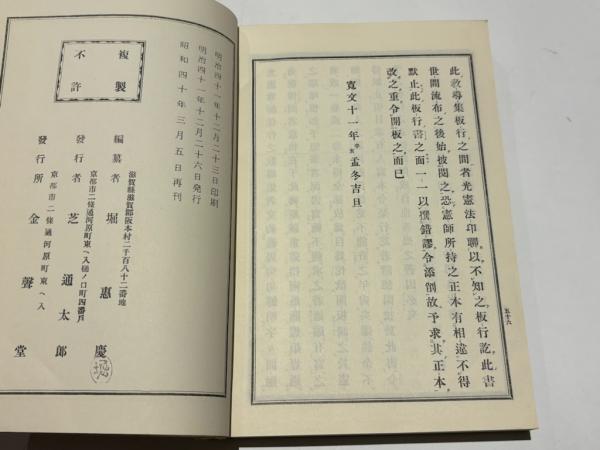 此教導集板行之間者光憲法印聯以不知之板行訖此書
世間流布之後始披閲之恐憲師所持之正本有相違不得
默止此板行書之面一一以撰錯謬令添削故予求其正本
改之重令開板之而已
寛文十一年辛亥孟冬吉旦
五十六
明治四十一年十二月二十三日印刷
明治四十一年十二月二十六日発行
昭和四十年三月五日再刊
不許
複製
滋賀縣滋賀郡阪本村二千百八十二番地
編纂者 堀惠慶
京都市二條通河原町東ヘ入樋ノ口町四番戸
發行者 芝通太郎
京都市二條通河原町東ヘ入
發行所 金聲堂